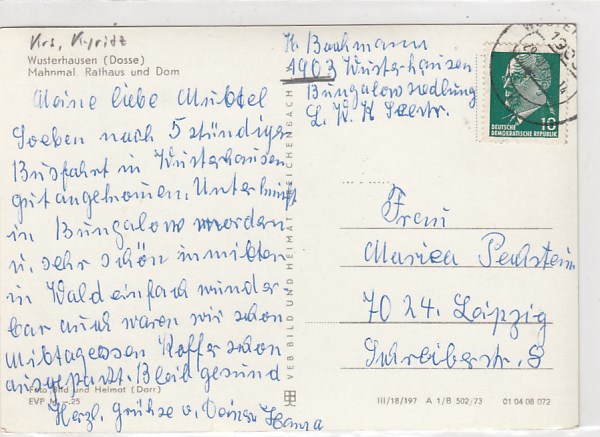 Krs. Kyritz
Wusterhausen (Dosse)
Mahnmal, Rathaus und Dom
Meine liebe Muttel
Soeben nach 5 stündiger
Busfahrt in Wusterhausen
gut angekommen. Unterkunft
in Bungalow modern
u. sehr schön inmitten
in Wald einfach wunder-
bar auch waren wir schon
Mittagessen Koffer schon
ausgepackt. Bleib gesund
Herzl. Grüße v. Deiner Hanna
Foto Bild und Heimat (Darr)
EVP M -.25
VEB BILD UND HEIMAT REICHENBACH
H. Bachmann
1903 Wusterhausen
Bungalowsiedlung
Seestr.
DEUTSCHE
DEMOKRATISCHE REPUBLIK
10
Frau
Maria Pechstein
7024 Leipzig
Schreiberstr. 8
III/18/197 A 1/B 502/73 01 04 08 072